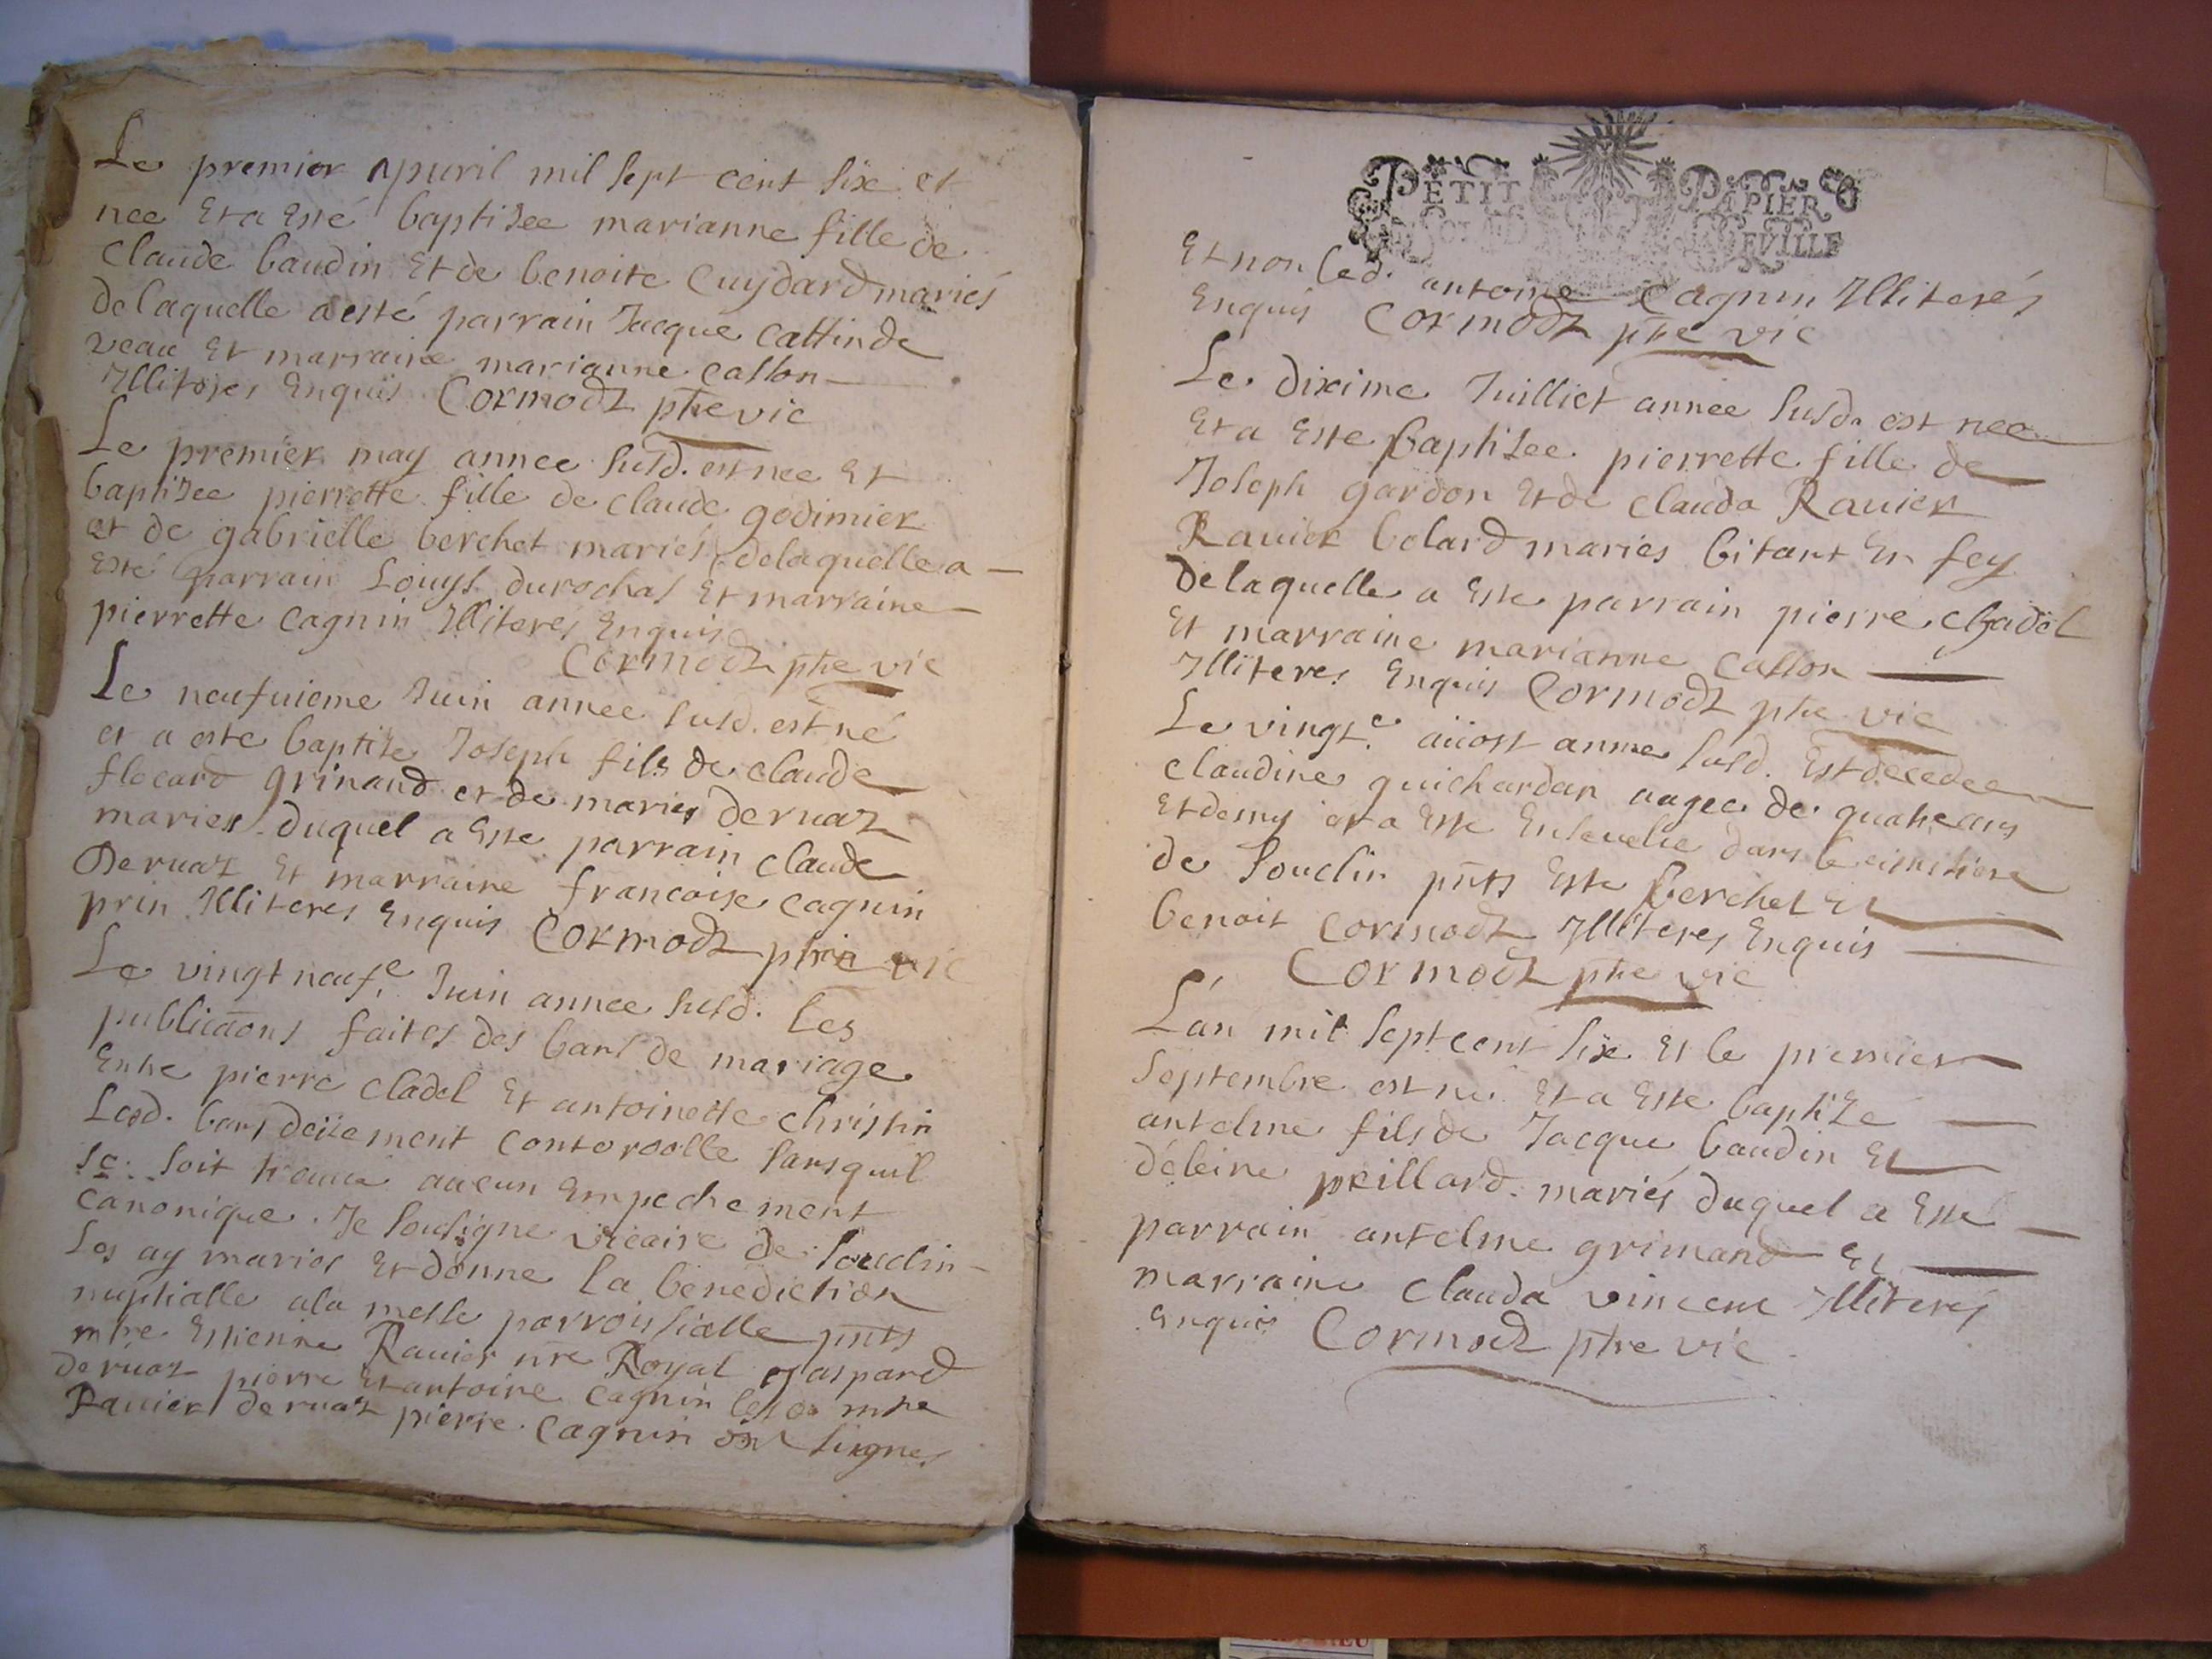 Le premier apuril mil sept cent six est
nee et a esté baptisee marianne fille de
Claude baudin et de benoite Cuydard mariés
de laquelle a esté parrain Jacque Cattin de
veau et marraine marianne Callon
Illiteres Enquis Cormodz ptre vic
Le premier may annee susd. est nee et
baptisee pierrette fille de claude godimier
et de gabrielle berchet mariés de laquelle a
esté parrain Louys durochat et marraine
pierrette Cagnin Illiteres Enquis
Cormodz ptre vic
Le neufuieme Juin annee susd. est né
et a este baptise Joseph fils de claude
flocard grinand et de marie deruaz
maries duquel a este parrain claude
Deruaz et marraine francoise cagnin
prin Illiteres Enquis Cormodz ptre vic
Le vingt neuf.e Juin annee susd. les
publicaons faites des bans de mariage
Entre pierre Cladel et antoinette christin
Lesd. bans deüement Controolle sans quil
se. soit trouué aucun Empechement
Canonique. Je sousigne vicaire de soudin
Les ay maries et donne la benediction
nuptialle a la messe parroissialle pnts
mtre Estienne Rauier nre Royal gaspard
deruaz pierre et antoine Cagnin lesd. mtre
Rauier deruaz pierre Cagnin ont signes
PETIT PAPIER
Et non led. antoine Cagnin Illiterés
Enquis Cormodz ptre vic
Le dixime Juilliet annee susd. est nee
et a este baptisee pierrette fille de
Joseph gardon et de clauda Rauier
Rauier bolard maries bitant En fey
de laquelle a este parrain pierre chadel
et marraine marianne Callon
Illiteres Enquis Cormodz ptre vic
Le vingt.e aüost annee susd. Est decedee
claudine guichardan aagee de quatre ans
et demy et a este Enseuelie dans le cimitiere
de soudin pnts Este berchet et
benoit Cormodz Illiteres Enquis
Cormodz ptre vic
L'an mil sept cent six et le premier
septembre est né et a este baptizé
antelme fils de Jacque baudin et
deleine peillard mariés duquel a este
parrain antelme grimand et
marraine Clauda vincent Illiterés
Enquis Cormodz ptre vic.